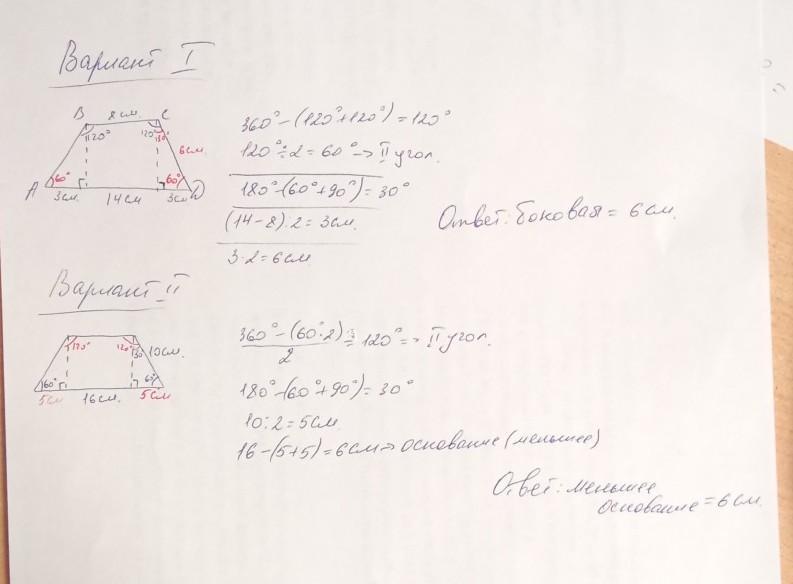 Вариант I
B 8 см. C
120° 120° 30° 6 см.
A 60° 60° D
3 см. 14 см 3 см
360° - (120° + 120°) = 120°
120° : 2 = 60° → II угол.
180° - (60° + 90°) = 30°
(14 - 8) : 2 = 3 см.
3 · 2 = 6 см
Ответ: боковая = 6 см.
Вариант II
120° 120° 30 10 см.
60° 60°
5 см 16 см. 5 см
360° - (60° · 2) = 120° => II угол.
2
180° - (60° + 90°) = 30°
10 : 2 = 5 см.
16 - (5 + 5) = 6 см => основание (меньшее)
Ответ: меньшее
основание = 6 см.